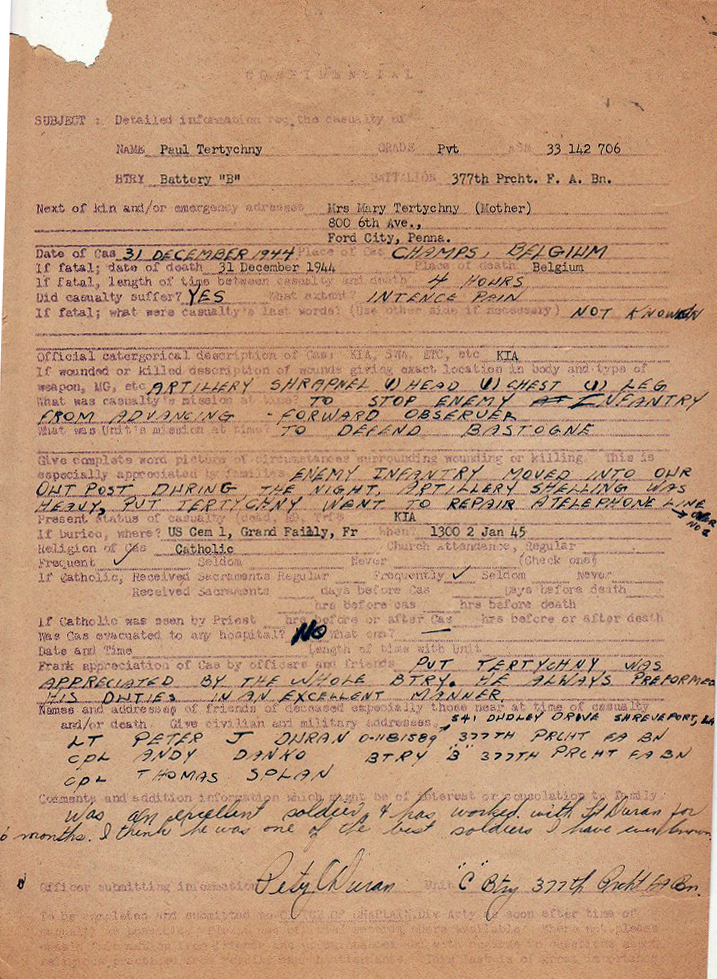 CONFIDENTIAL
SUBJECT : Detailed information re, the casualty of
NAME Paul Tertychny GRADE Pvt ASN 33 142 706
BTRY Battery "B" BATTALION 377th Prcht. F. A. Bn.
Next of kin and/or emergency adressee Mrs Mary Tertychny (Mother)
800 6th Ave.,
Ford City, Penna.
Date of Cas 31 DECEMBER 1944 Place of Cas CHAMPS, BELGIUM
If fatal; date of death 31 December 1944 Place of death Belgium
If fatal, length of time between casualty and death 4 HOURS
Did casualty suffer? YES What extent? INTENCE PAIN
If fatal; what were casualty's last words? (Use other side if necessary) NOT KNOWN
Official catergorical description of Cas: KIA, SWA, ETC, etc KIA
If wounded or killed description of wounds giving exact location in body and type of
weapon, MG, etc ARTILLERY SHRAPNEL (1) HEAD (1) CHEST (1) LEG
What was casualty's mission at time? TO STOP ENEMY INFANTRY
FROM ADVANCING - FORWARD OBSERVER
What was Unit's mission at time? TO DEFEND BASTOGNE
Give complete word picture of circumstances surrounding wounding or killing. This is
especially appreciated by families ENEMY INFANTRY MOVED INTO OUR
OUT POST DURING THE NIGHT, ARTILLERY SHELLING WAS
HEAVY, PUT TERTYCHNY WENT TO REPAIR A TELEPHONE LINE
Present status of casualty KIA
→ OVER
If buried, where? US Cem 1, Grand Failly, Fr When? 1300 2 Jan 45
Religion of Cas Catholic Church Attendance, Regular
Frequent ✓ Seldom Never (Check one)
If Catholic, Received Sacraments Regular Frequently ✓ Seldom Never
Received Sacraments days before Cas Days before death
hrs before cas hrs before death
If Catholic was seen by Priest hrs before or after Cas hrs before or after death
Was Cas evacuated to any hospital? NO What one? —
Date and Time Length of time with Unit
Frank appreciation of Cas by officers and friends PUT TERTYCHNY WAS
APPRECIATED BY THE WHOLE BTRY. HE ALWAYS PREFORMED
HIS DUTIES IN AN EXCELLENT MANNER
Names and addresses of friends of deceased especially those near at time of casualty
and/or death. Give civilian and military addresses. 541 DUDLEY DRIVE SHREVEPORT, LA
LT PETER J DURAN 0-1181589 377TH PRCHT FA BN
CPL ANDY DANKO BTRY "B" 377TH PRCHT FA BN
CPL THOMAS SPLAN
Comments and addition information which might be of interest or consolation to family
Was an excellent soldier, & has worked with Lt Duran for
6 months. I think he was one of the best soldiers I have ever known
Officer submitting information Unit "C" Btry 377th Prcht FA Bn.
To be completed and submitted to OFFICE OF CHAPLAIN, Div Arty as soon after time of